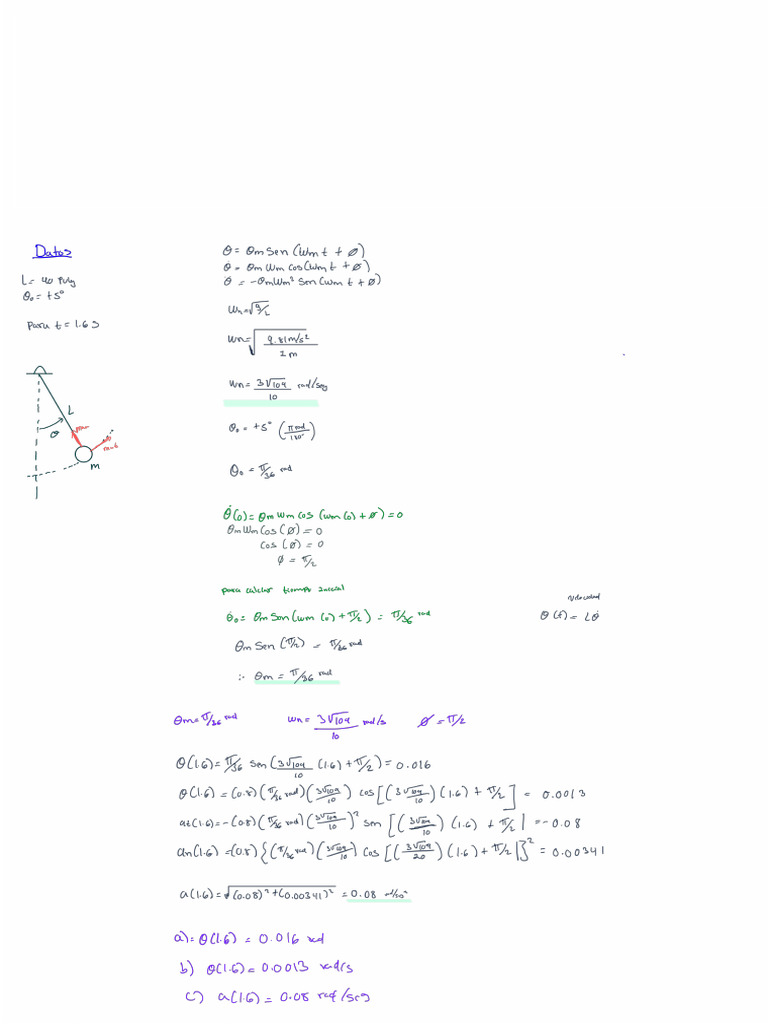 Datos
L= 40 Pulg
θ₀ = +5°
para t = 1.6 s
L
θ
m
θ = θm sen (Wm t + ø)
θ = θm Wm cos (Wm t + ø)
θ = -θm Wm² sen (Wm t + ø)
Wn = √g/L
Wn = √9.81 m/s² / 1 m
Wn = 3√109 / 10 rad/seg
θ₀ = +5° (π rad / 180°)
θ₀ = π/36 rad
θ̇(0) = θm Wm cos (Wm (0) + ø) = 0
θm Wm cos (ø) = 0
cos (ø) = 0
ø = π/2
para calcular tiempo inicial
θ̇₀ = θm Sen (Wm (0) + π/2) = π/36 rad
θm Sen (π/2) = π/36 rad
∴ θm = π/36 rad
velocidad
θ (t) = Lθ̇
θm = π/36 rad Wn = 3√109 / 10 rad/s ø = π/2
θ(1.6) = π/36 sen (3√109 / 10 (1.6) + π/2) = 0.016
θ(1.6) = (0.8) (π/36 rad) (3√109 / 10) cos [(3√109 / 10) (1.6) + π/2] = 0.0013
at(1.6) = -(0.8) (π/36 rad) (3√109 / 10)² sen [(3√109 / 10) (1.6) + π/2] = -0.08
an(1.6) = (0.8) {(π/36 rad) (3√109 / 10) cos [(3√109 / 20) (1.6) + π/2]}² = 0.00341
a(1.6) = √(0.08)² + (0.00341)² = 0.08 rad/seg²
a) = θ(1.6) = 0.016 rad
b) θ(1.6) = 0.0013 rad/s
c) a(1.6) = 0.08 rad/seg